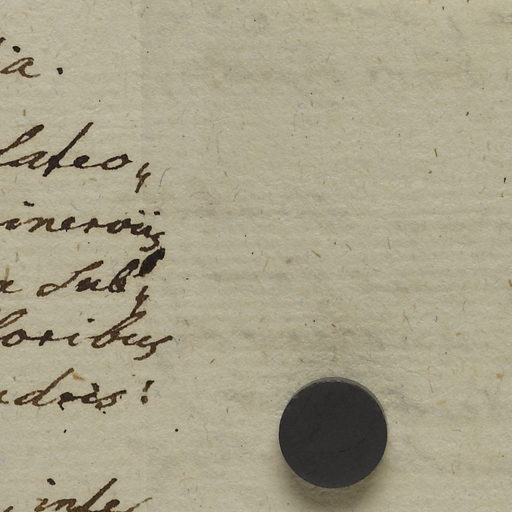 ia.
lateo„
inerviis
a sub„
loribus
udris:
inte